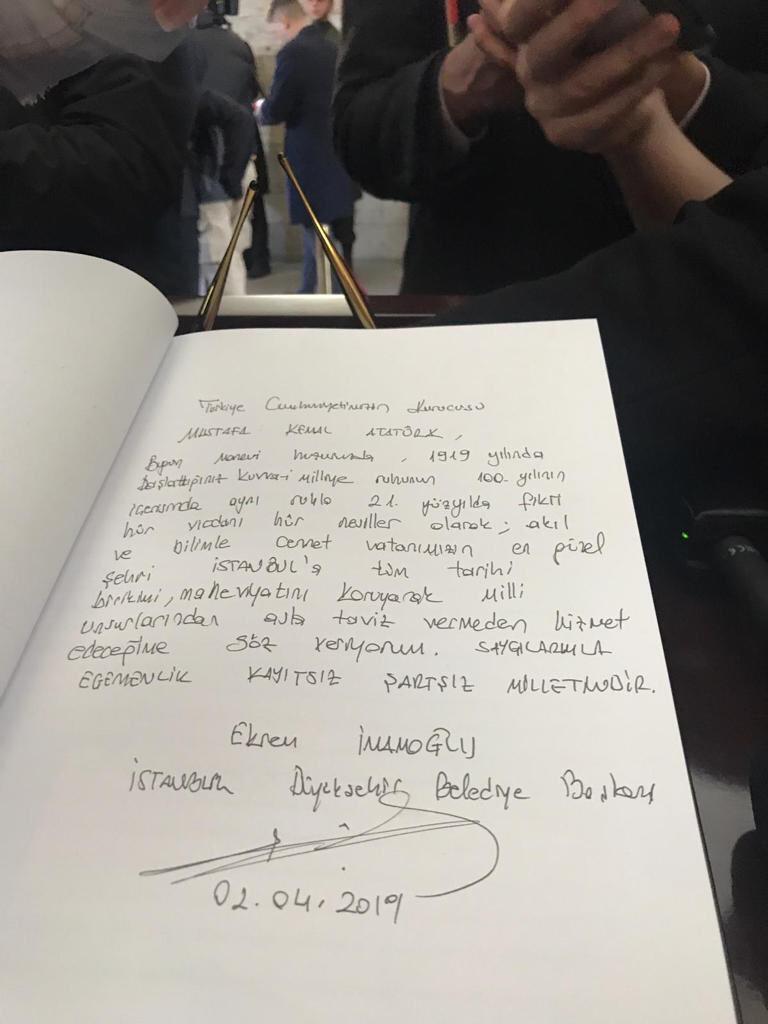 Türkiye Cumhuriyetimizin Kurucusu
MUSTAFA KEMAL ATATÜRK,
Bugün Manevi huzurunuzda, 1919 yılında
Başlattığınız Kuvva-i Milliye ruhunun 100. yılının
içerisinde aynı ruhla 21. yüzyılda fikri
hür vicdanı hür nesiller olarak; akıl
ve bilimle cennet vatanımızın en güzel
şehri İSTANBUL'a tüm tarihi
birikimi, maneviyatını koruyarak Milli
unsurlarından asla taviz vermeden hizmet
edeceğime söz veriyorum. SAYGILARIMLA
EGEMENLİK KAYITSIZ ŞARTSIZ MİLLETİNDİR.
Ekrem İMAMOĞLU
İSTANBUL Büyükşehir Belediye Başkanı
02.04.2019